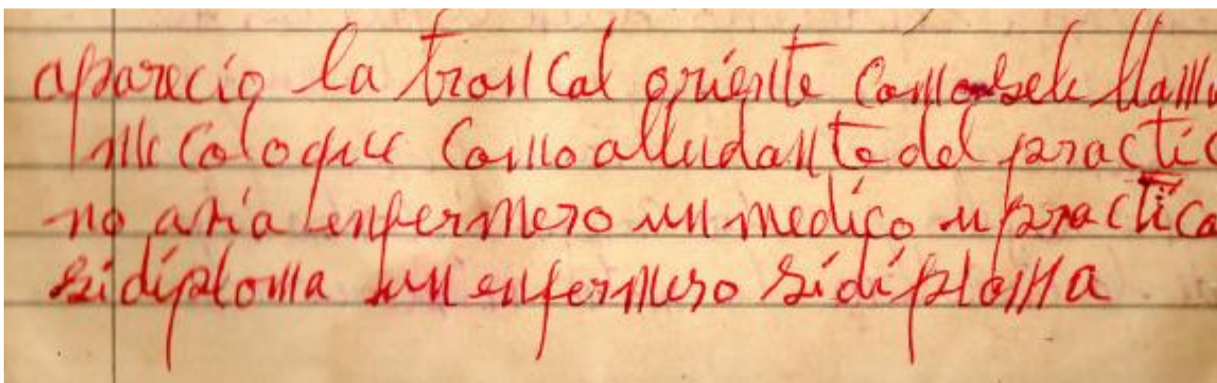 aparecio la troncal oriente como sele llamo
me coloque como alludante del practic
no aria enfermero un medico u practica
si diploma un enfermero si diploma